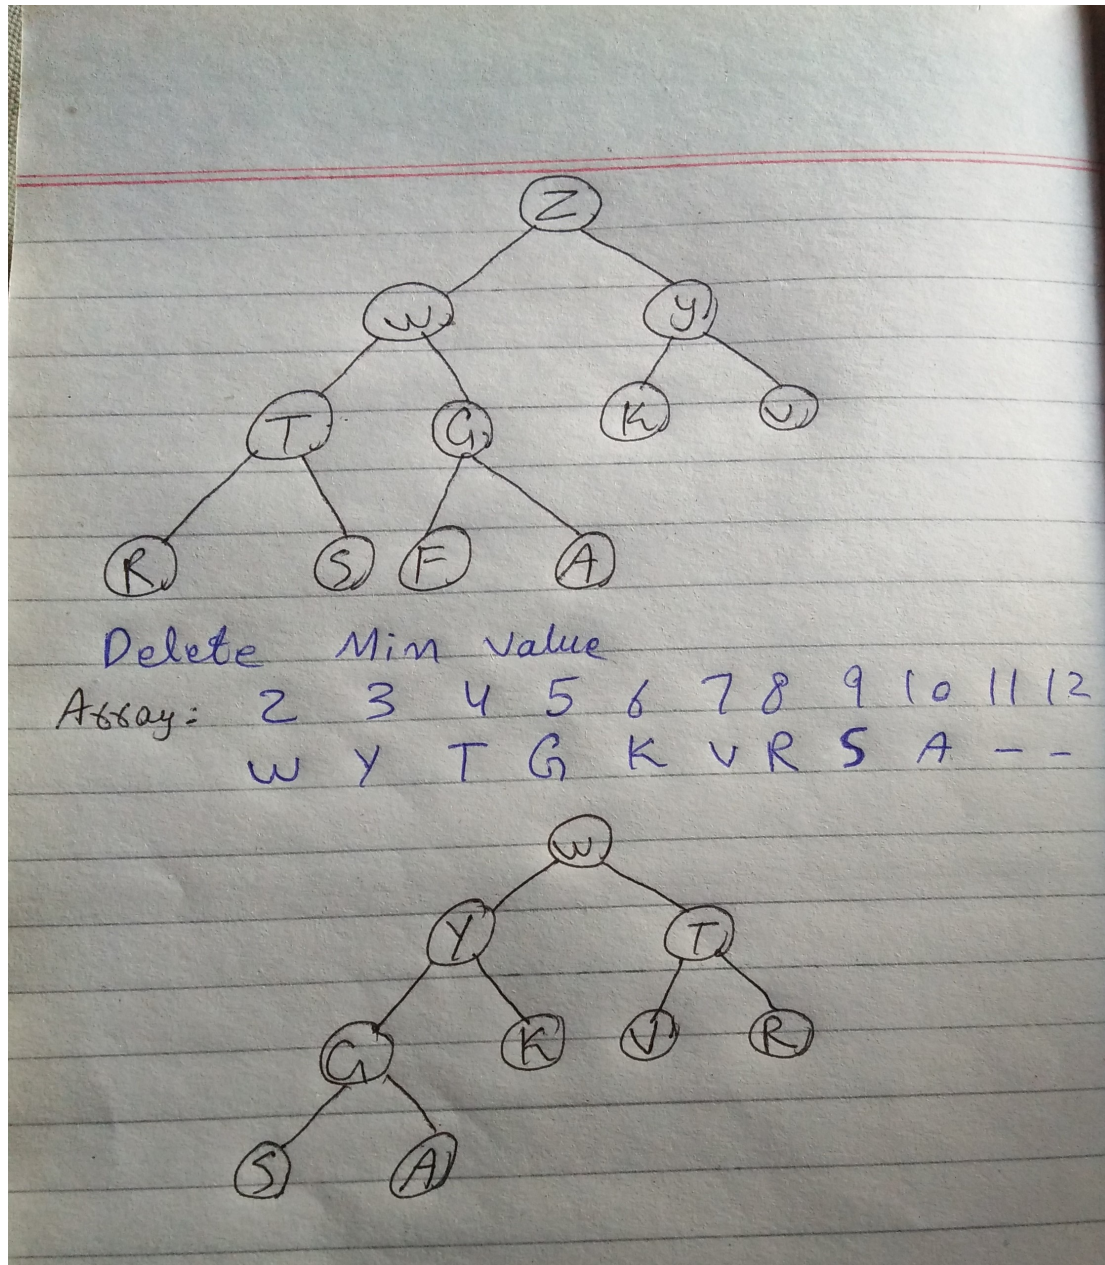 Z
W Y
T G K V
R S F A
Delete Min Value
Array: 2 3 4 5 6 7 8 9 10 11 12
W Y T G K V R S A – –
W
Y T
G K V R
S A